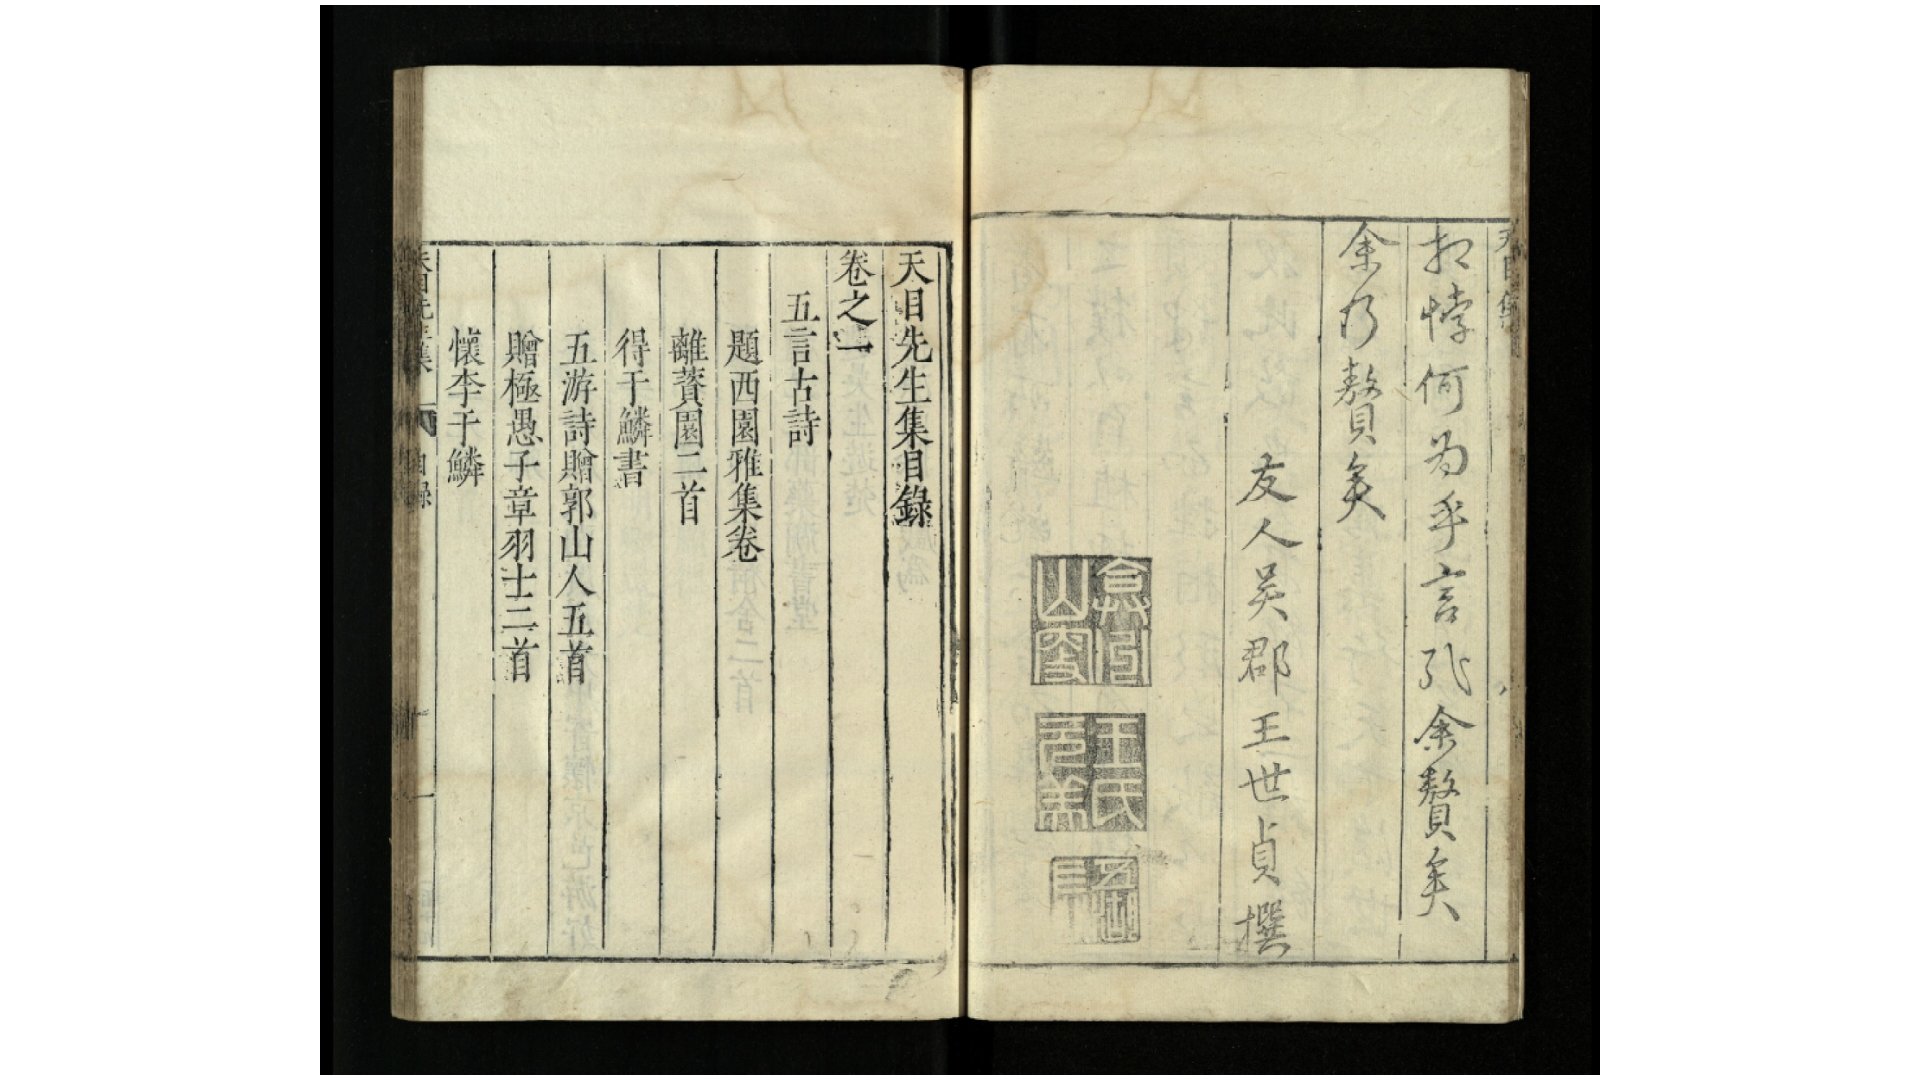 相悖何為乎言孔余贅矣
余乃贅矣
友人吳郡王世貞撰
王氏元美
天目先生集目錄
卷之一
五言古詩
題西園雅集卷
離薋園二首
得于鱗書
五游詩贈郭山人五首
贈極愚子章羽士二首
懷李于鱗
天目先生集
目錄
一